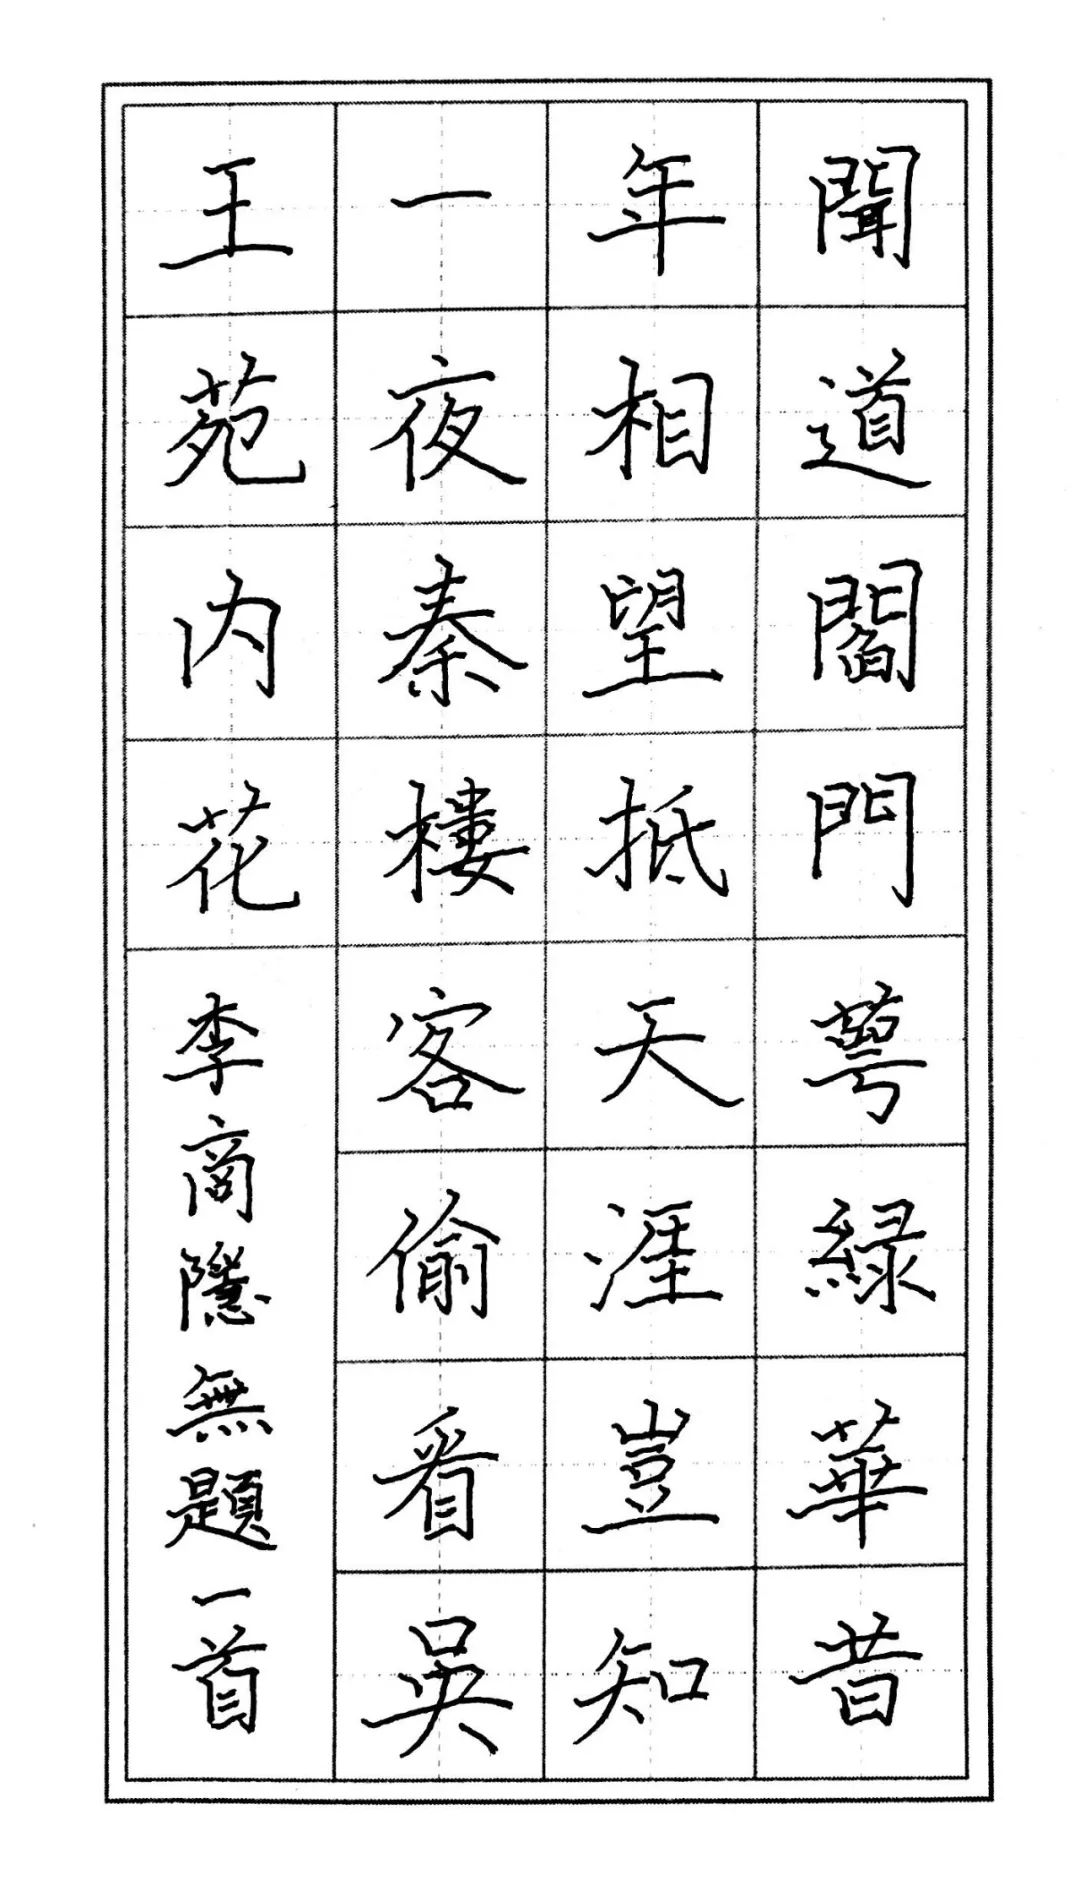 聞道閶門萼綠華昔
年相望抵天涯豈知
一夜秦樓客偷看吳
王苑内花
李商隱無題一首